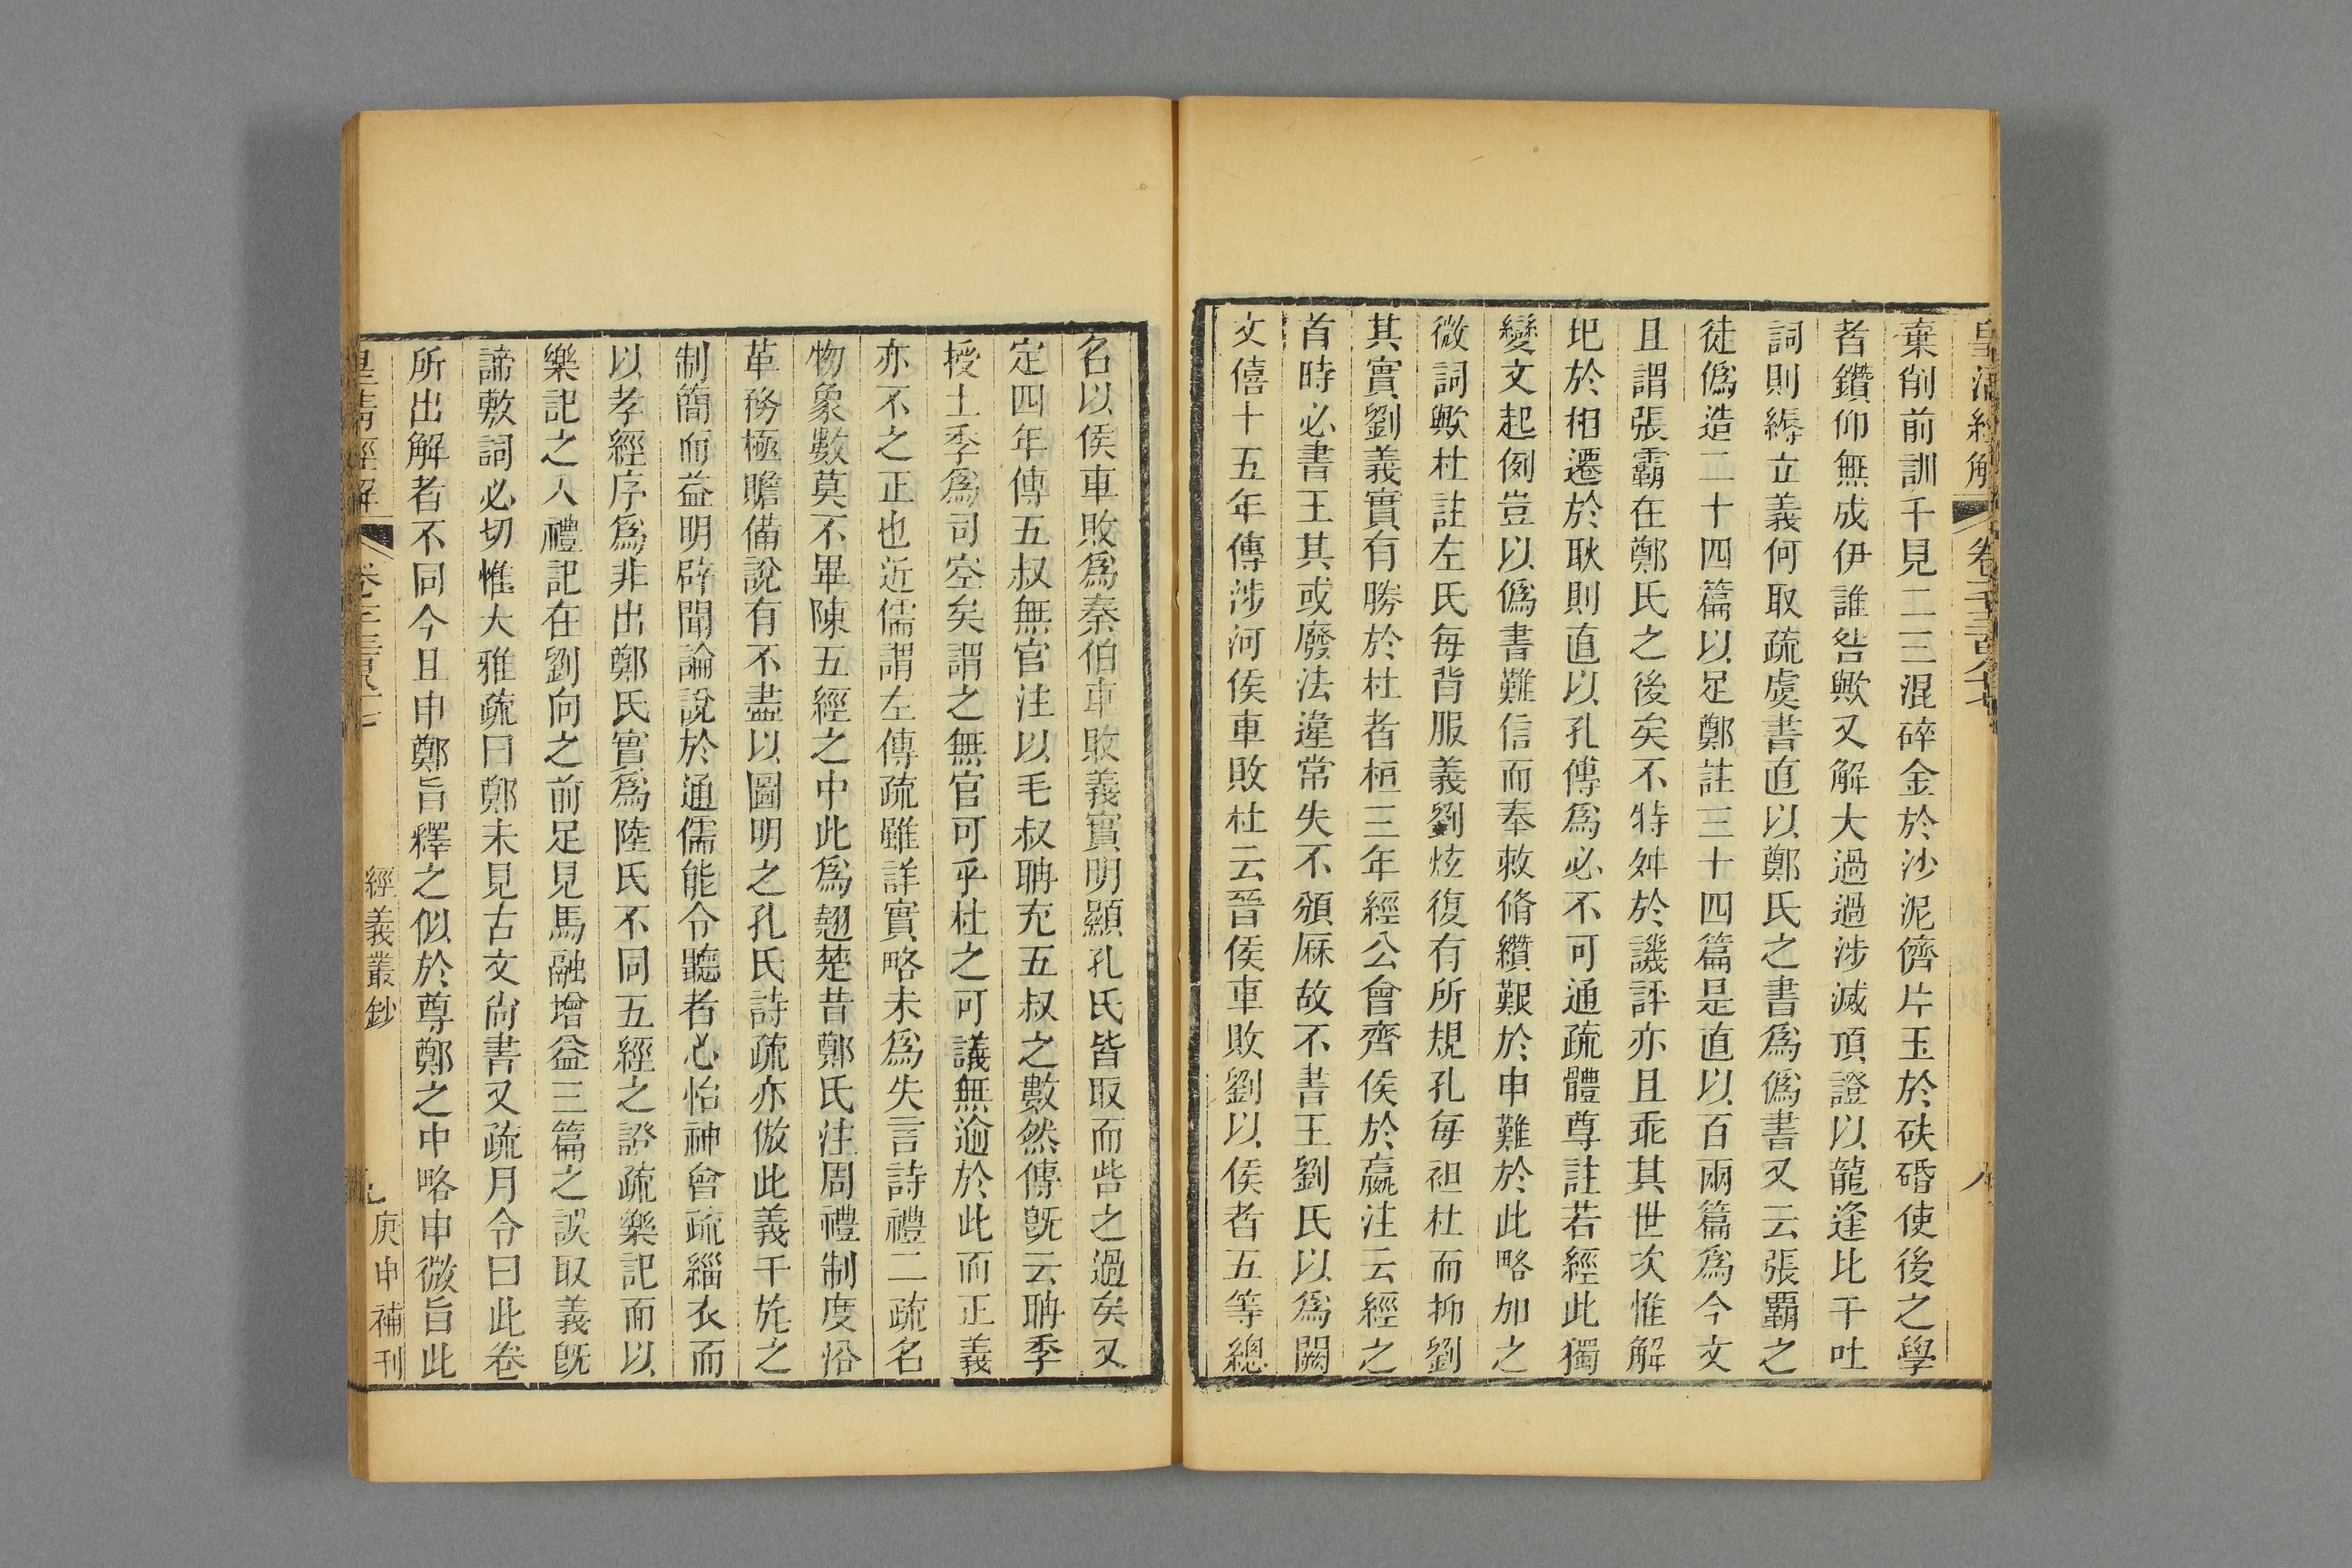 皇清經解
卷一千三百八十七
八
棄削前訓千見二三混碎金於沙泥儕片玉於砆碈使後之學
者鑽仰無成伊誰咎歟又解大過過涉滅頂證以龍逢比干吐
詞則縟立義何取疏虞書直以鄭氏之書爲僞書又云張霸之
徒僞造二十四篇以足鄭註三十四篇是直以百兩篇爲今文
且謂張霸在鄭氏之後矣不特舛於譏評亦且乖其世次惟解
圯於相遷於耿則直以孔傳爲必不可通疏體尊註若經此獨
變文起例豈以僞書難信而奉敕脩纘艱於申難於此略加之
微詞歟杜註左氏每背服義劉炫復有所規孔每袒杜而抑劉
其實劉義實有勝於杜者桓三年經公會齊侯於嬴注云經之
首時必書王其或廢法違常失不頒厤故不書王劉氏以爲闕
文僖十五年傳涉河侯車敗杜云晉侯車敗劉以侯者五等總
名以侯車敗爲秦伯車敗義實明顯孔氏皆取而呰之過矣又
定四年傳五叔無官注以毛叔聃充五叔之數然傳旣云聃季
授土季爲司空矣謂之無官可乎杜之可議無逾於此而正義
亦不之正也近儒謂左傳疏雖詳實略未爲失言詩禮二疏名
物象數莫不畢陳五經之中此爲翹楚昔鄭氏注周禮制度沿
革務極贍備說有不盡以圖明之孔氏詩疏亦倣此義干旄之
制簡而益明辟聞論說於通儒能令聽者心怡神會疏緇衣而
以孝經序爲非出鄭氏實爲陸氏不同五經之證疏樂記而以
樂記之入禮記在劉向之前足見馬融增益三篇之誤取義旣
諦敷詞必切惟大雅疏曰鄭未見古文尙書又疏月令曰此卷
所出解者不同今且申鄭旨釋之似於尊鄭之中略申微旨此
皇淸經解
經義叢鈔
庚申補刊